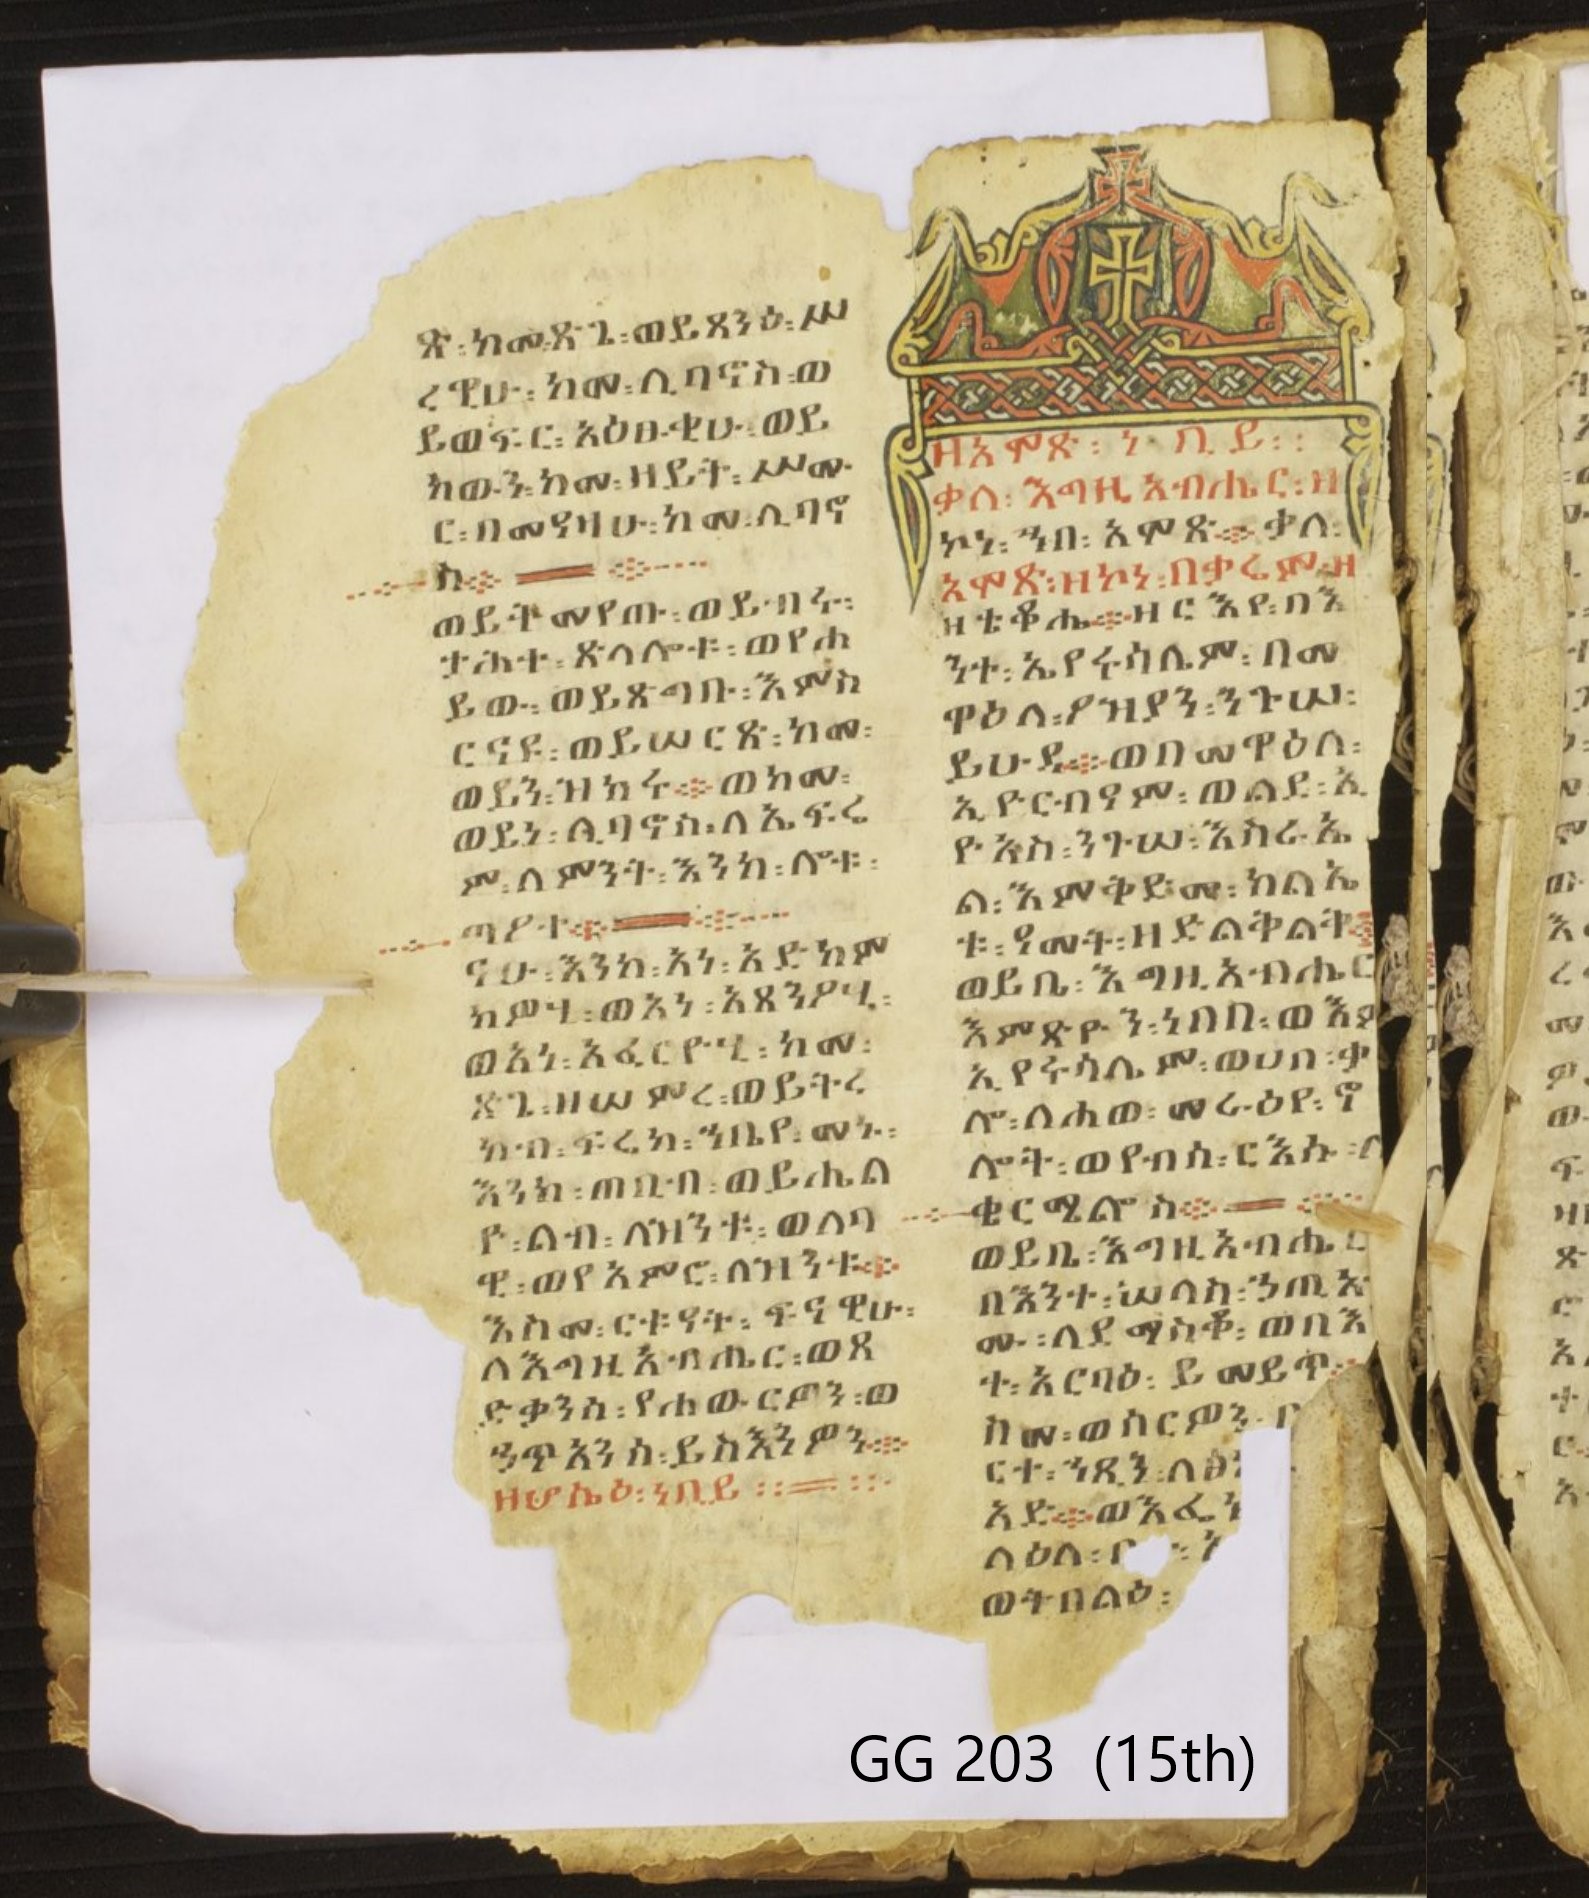 ጽ፡ከመ፡ጽጌ፡ወይጸንዕ፡ሥ
ረዊሁ፡ከመ፡ሊባኖስ፡ወ
ይወፍር፡አዕፁቂሁ፡ወይ
ከውን፡ከመ፡ዘይት፡ሥሙ
ር፡በመዓዛሁ፡ከመ፡ሊባኖ
ስ።
ወይትመየጡ፡ወይብሩ፡
ታሕተ፡ጽላሎቱ፡ወየሐ
ይው፡ወይጸግቡ፡እምስ
ርናዩ፡ወይሠርጽ፡ከመ፡
ወይን፡ዝከሩ።ወከመ፡
ወይነ፡ሊባኖስ፡ለኤፍሬ
ም፡ለምንት፡እንከ፡ሎቱ፡
ጣዖተ።
ናሁ፡እንከ፡አነ፡አድከም
ክዎ፡ወአነ፡አጸንዖ፡
ወአነ፡አፈርዮ፡ከመ፡
ጽጌ፡ዘሠምረ፡ወይትረ
ከብ፡ፍሬከ፡ኀቤየ፡መኑ፡
እንከ፡ጠቢብ፡ወይሔል
ዮ፡ልብ፡ለዝንቱ፡ወለባ
ዊ፡ወየአምሮ፡ለዝንቱ።
እስመ፡ርቱዓት፡ፍናዊሁ፡
ለእግዚአብሔር፡ወጸ
ድቃንስ፡የሐውርዎን፡ወ
ኃጥአንሰ፡ይስእንዎን።
ዘሆሴዕ፡ነቢይ፡፡
ዘአሞጽ፡ነቢይ፡፡
ቃለ፡እግዚአብሔር፡ዘ
ኮነ፡ኀበ፡አሞጽ።ቃለ፡
አሞጽ፡ዘኮነ፡በቃሬም፡ዘ
ዘቴቆሔ።ዘርእየ፡በእ
ንተ፡ኢየሩሳሌም፡በመ
ዋዕለ፡ዖዝያን፡ንጉሠ፡
ይሁዳ።ወበመዋዕለ፡
ኢዮርብዓም፡ወልደ፡ኢ
ዮአስ፡ንጉሠ፡እስራኤ
ል፡እምቅድመ፡ክልኤ
ቱ፡ዓመት፡ዘድልቅልቅ።
ወይቤ፡እግዚአብሔር
እምጽዮን፡ነበበ፡ወእም
ኢየሩሳሌም፡ወሀበ፡ቃ
ሎ፡ለሐወ፡መራዕየ፡ኖ
ሎት፡ወየብሰ፡ርእሱ፡ለ
ቂርሜሎስ።
ወይቤ፡እግዚአብሔር
በእንተ፡ሠላስ፡ኃጢአ
ሙ፡ለደማስቆ፡ወበእ
ተ፡አርባዕ፡ይመይጥ።
ከመ፡ወሰርዎን፡
ርተ፡ኀጺን፡
አድ።ወእፌኑ
ላዕለ፡
ወትበልዕ፡
GG 203 (15th)